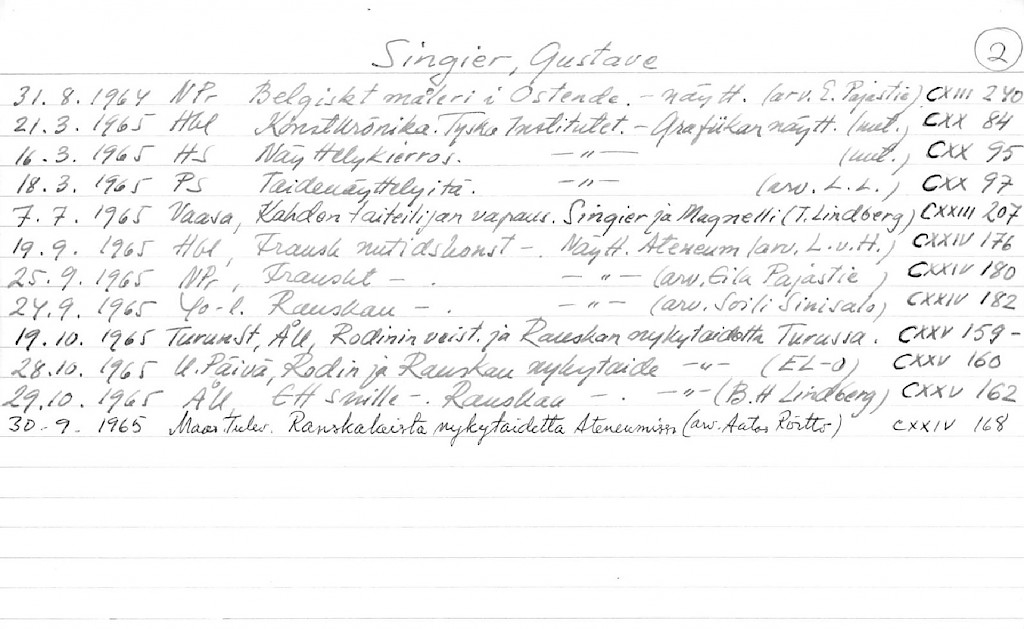 Singier, Gustave 2
31.8.1964 NPr Belgiskt måleri i Ostende. - näytt. (arv. E. Pajastie) CXIII 240
21.3.1965 Hbl Konstkrönika. Tyska Institutet. - Grafiikan näytt. (mt.) CXX 84
16.3.1965 HS Näyttelykierros. -"- (mt.) CXX 95
18.3.1965 PS Taidenäyttelyitä. -"- (arv. L.L.) CXX 97
7.7.1965 Vaasa, Kahden taiteilijan vapaus. Singier ja Magnelli (T. Lindberg) CXXIII 207
19.9.1965 Hbl, Fransk nutidskonst - Näytt. Ateneum (arv. L.v.H.) CXXIV 176
25.9.1965 NPr, Franskt - . -"- (arv. Eila Pajastie) CXXIV 180
24.9.1965 Yo-l. Ranskan - . -"- (arv. Soili Sinisalo) CXXIV 182
19.10.1965 TurunSt, ÅU, Rodinin veist. ja Ranskan nykytaidetta Turussa. CXXV 159-
28.10.1965 U. Päivä, Rodin ja Ranskan nykytaide -"- (EL-O) CXXV 160
29.10.1965 ÅU, Ett snille -. Ranskan - . -"- (B.H Lindberg) CXXV 162
30.9.1965 Maas.Tulev. Ranskalaista nykytaidetta Ateneumissa (arv. Aatos Röttö) CXXIV 168